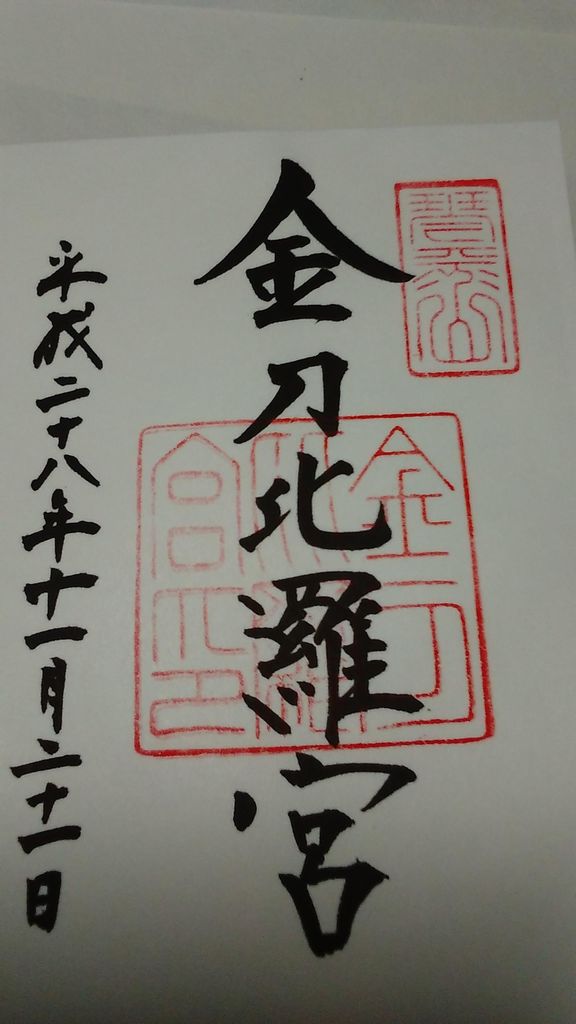 金刀比羅宮
金刀
比羅
宮印
平成二十八年十一月二十一日